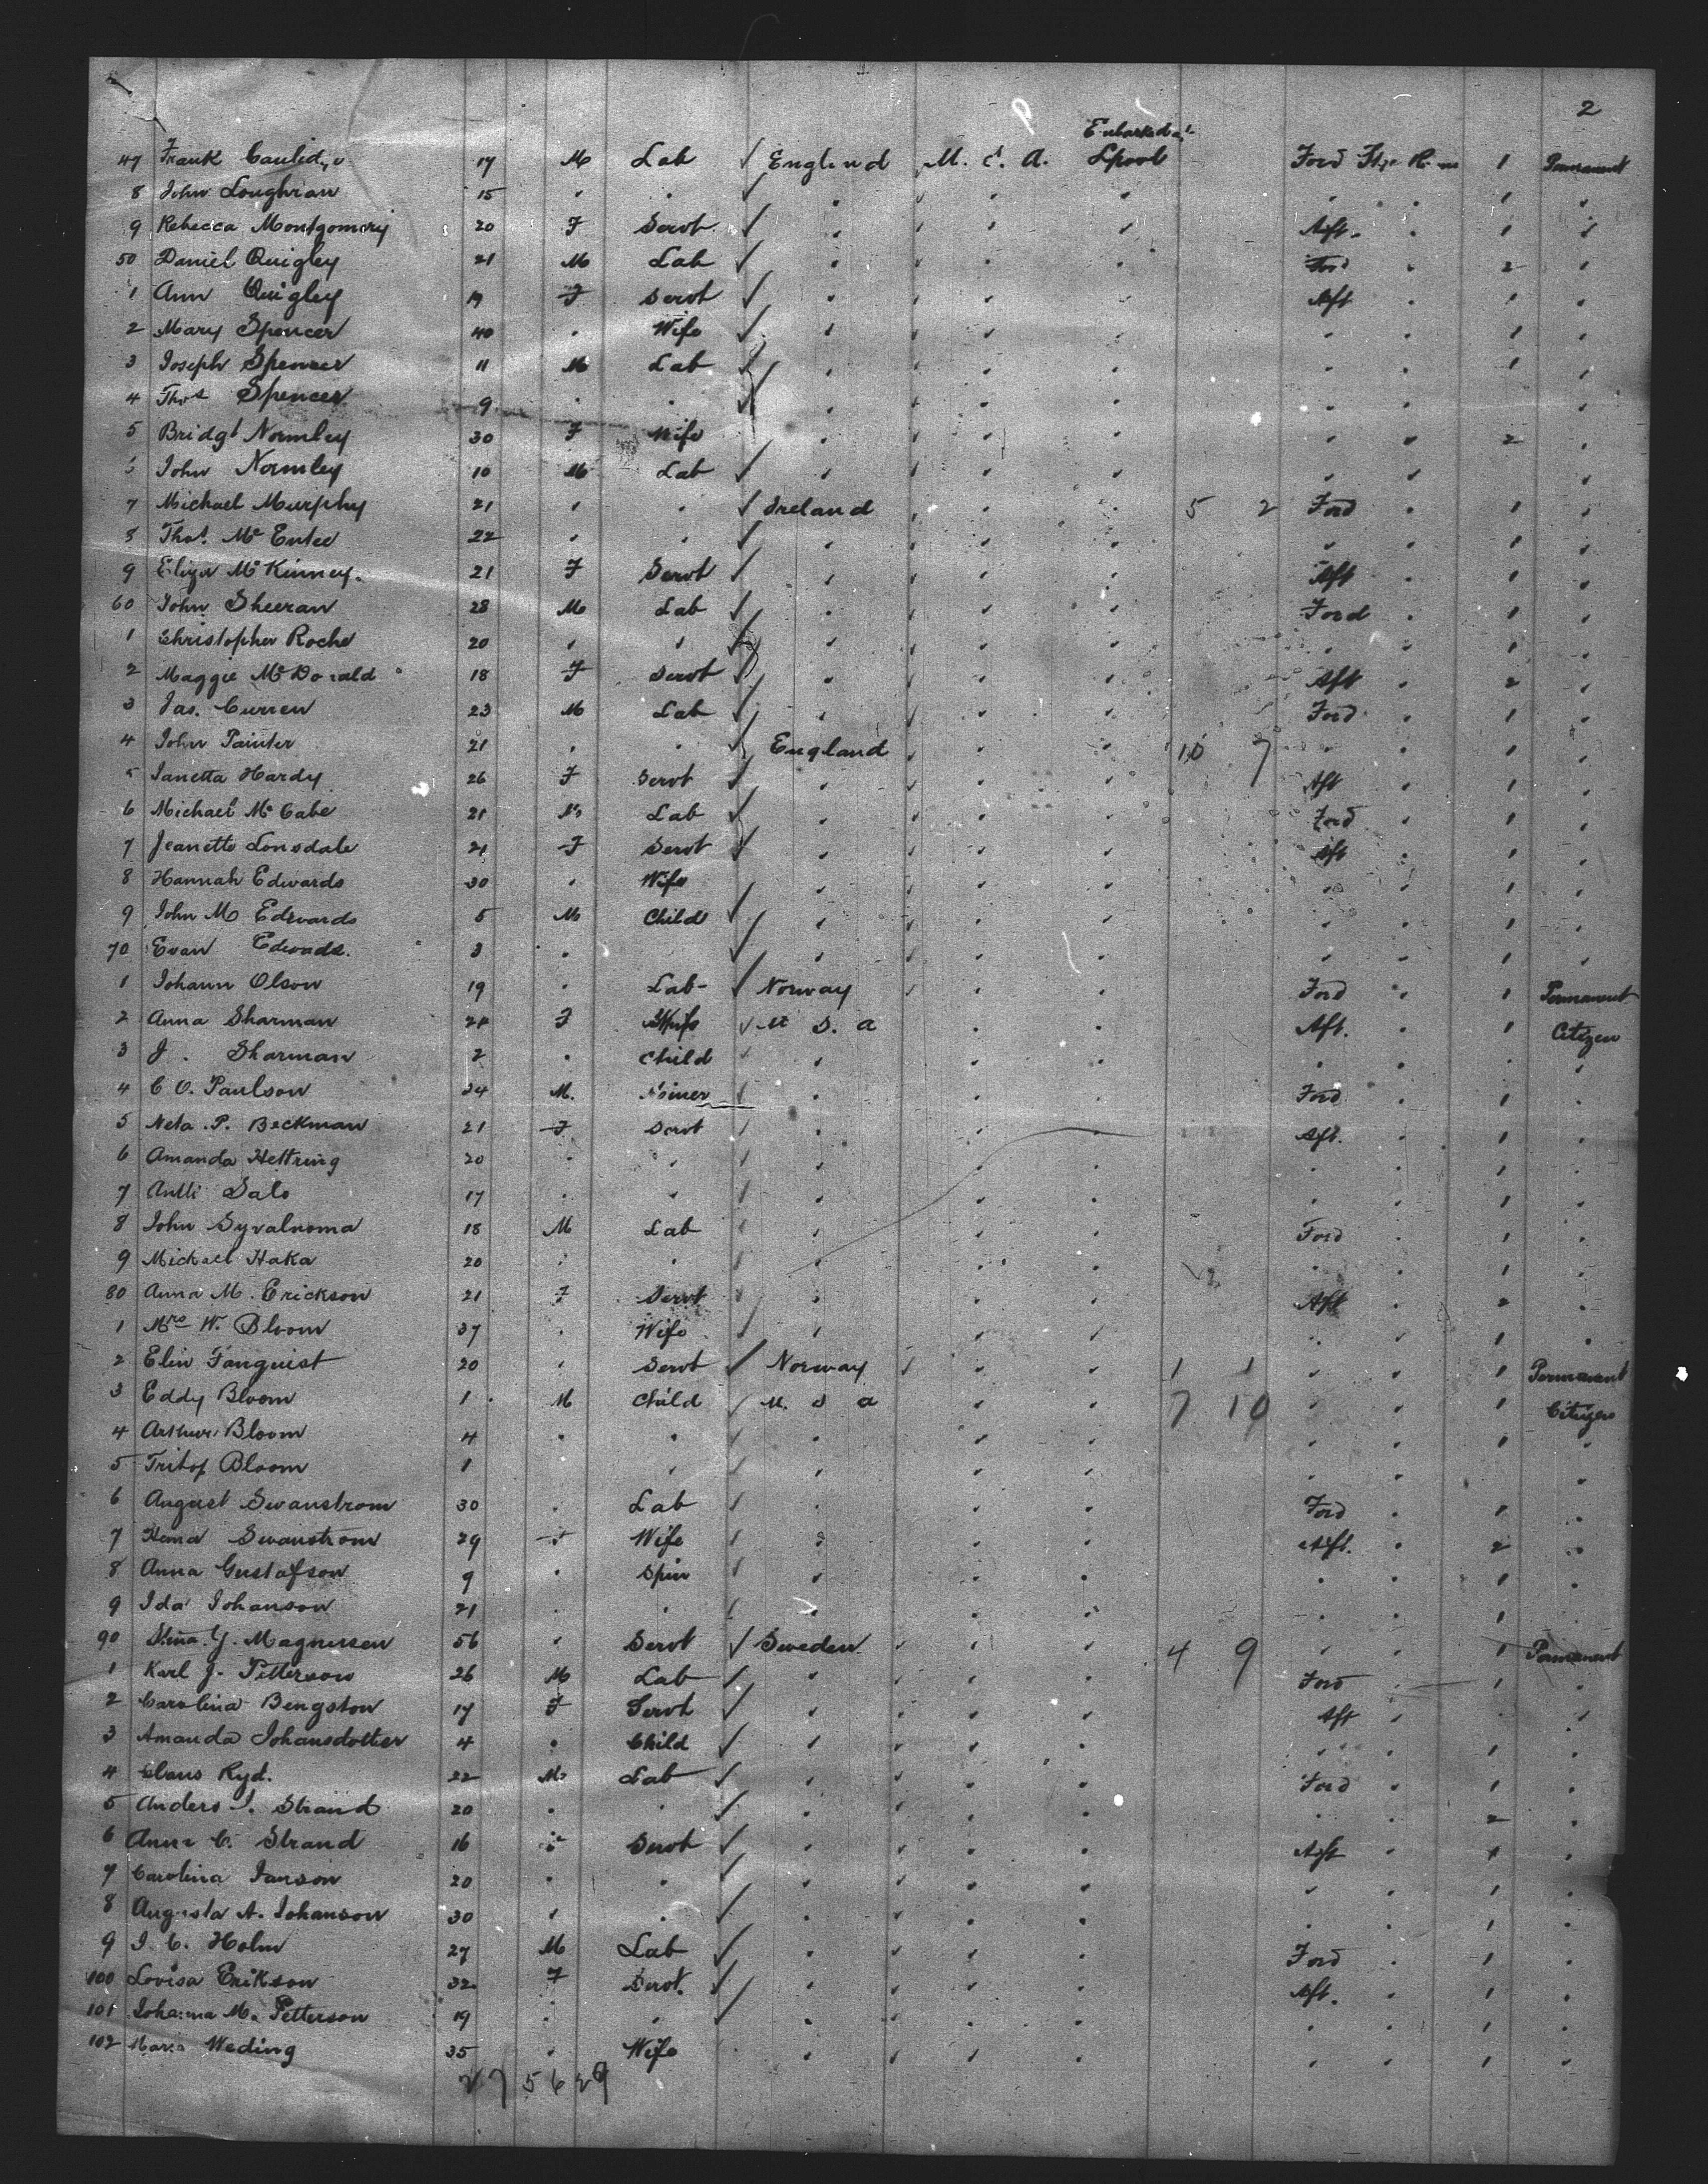 2
Embarked at
47 Frank 17 M Lab ✓ England U. S. A. Lpool Ford 1 Permanent
8 John Loughran 15 " " ✓ " " " " " " 1 "
9 Rebecca Montgomery 20 F Servt ✓ " " " " Aft. " 1 "
50 Daniel Quigley 21 M Lab ✓ " " " " Ford " 2 "
1 Ann Quigley 19 F Servt ✓ " " " Aft " 1 "
2 Mary Spencer 40 " Wife ✓ " " " " " " 1 "
3 Joseph Spencer 11 M Lab ✓ " " " " " " 1 "
4 Thos Spencer 9 " " ✓ " " " " " " 1 "
5 Bridgt Normley 30 F Wife " " " " " " 2 "
6 John Normley 10 M Lab ✓ " " " " " " "
7 Michael Murphy 21 " " ✓ Ireland " " " 5 2 Ford " 1 "
8 Thos. Mc Entee 22 " " ✓ " " " " " " 1 "
9 Eliza Mc Kinney. 21 F Servt ✓ " " " " Aft " 1 "
60 John Sheeran 28 M Lab ✓ " " " " Ford " 1 "
1 Christopher Roche 20 " " ✓ " " " " " " 1 "
2 Maggie Mc Donald 18 F Servt ✓ " " " " Aft " 2 "
3 Jas. Curren 23 M Lab ✓ " " " " Ford " 1 "
4 John Painter 21 " " ✓ England " " " 10 7 " " 1 "
5 Janetta Hardy 26 F Servt ✓ " " " " Aft " 1 "
6 Michael Mc Cabe 21 M Lab ✓ " " " " Ford " 1 "
7 Jeanette Lonsdale 21 F Servt ✓ " " " " Aft " 1 "
8 Hannah Edwards 30 " Wife " " " " " " 1 "
9 John M Edwards 5 M Child ✓ " " " " " " 1 "
70 Evan Edwads. 3 " ✓ " " " " " " 1 "
1 Johann Olson 19 " Lab ✓ Norway " " " Ford " 1 Permanent
2 Anna Sharman F Wife ✓ U S. a " " Aft. " 1 Citizen
3 J. Sharman 2 " Child ✓ " " " " " " "
4 C O. Paulson 24 M. Joiner ✓ " " " Ford " 1 "
5 Neta. P. Beckman 21 F Servt ✓ " " " Aft. " 1 "
6 Amanda Hettring 20 " " ✓ " " " " " 1 "
7 Antti Salo 17 " " ✓ " " " " " 1 "
8 John Syvalnoma 18 M Lab ✓ " " " Ford " 1 "
9 Michael Haka 20 " " ✓ " " " " " 1 "
80 Anna M. Erickson 21 F Servt ✓ " " " Aft " 2 "
1 Mrs W. Bloom 37 " Wife ✓ " " " " " 1 "
2 Elin 20 " Servt ✓ Norway " " " 1 1 " " 1 Permanent
3 Eddy Bloom 1 M Child ✓ U. S a " " 7 10 " " 1 Citizen
4 Arthur Bloom 4 " " ✓ " " " " " 1 "
5 Tritof Bloom 1 " ✓ " " " " " "
6 August Swanstrom 30 " Lab ✓ " " " Ford " 1 "
7 Swanstrom 29 F Wife ✓ " " " Aft. " 2 "
8 Anna Gustafson 9 " Spin ✓ " " " " " 1 "
9 Ida Johanson 21 " " ✓ " " " " " 1 "
90 Magnusen 56 " Servt ✓ Sweden " " " 4 9 " " 1 Permanent
1 Karl J. Petterson 26 M Lab ✓ " " " " Ford " 1 "
2 Carolina Bengston 17 F Servt ✓ " " " " Aft " "
3 Amanda Johansdotter 4 " Child ✓ " " " " " " 1 "
4 Claus Ryd. 22 M Lab ✓ " " " " Ford " 1 "
5 Anders J. Strand 20 " " ✓ " " " " " " 2 "
6 Anna C. Strand 16 F Servt ✓ " " " " Aft " 1 "
7 Carolina Janson 20 " " ✓ " " " " " " 1 "
8 Augusta A. Johanson 30 " " ✓ " " " " " " 1 "
9 J. C. Holm 27 M Lab ✓ " " " " Ford " 1 "
100 Lovisa Erikson 32 F Servt. ✓ " " " " Aft. " 1 "
101 Johanna M. Petterson 19 " " ✓ " " " " " " 1 "
102 Maria Weding 35 " Wife " " " " " " 1 "
27 5629